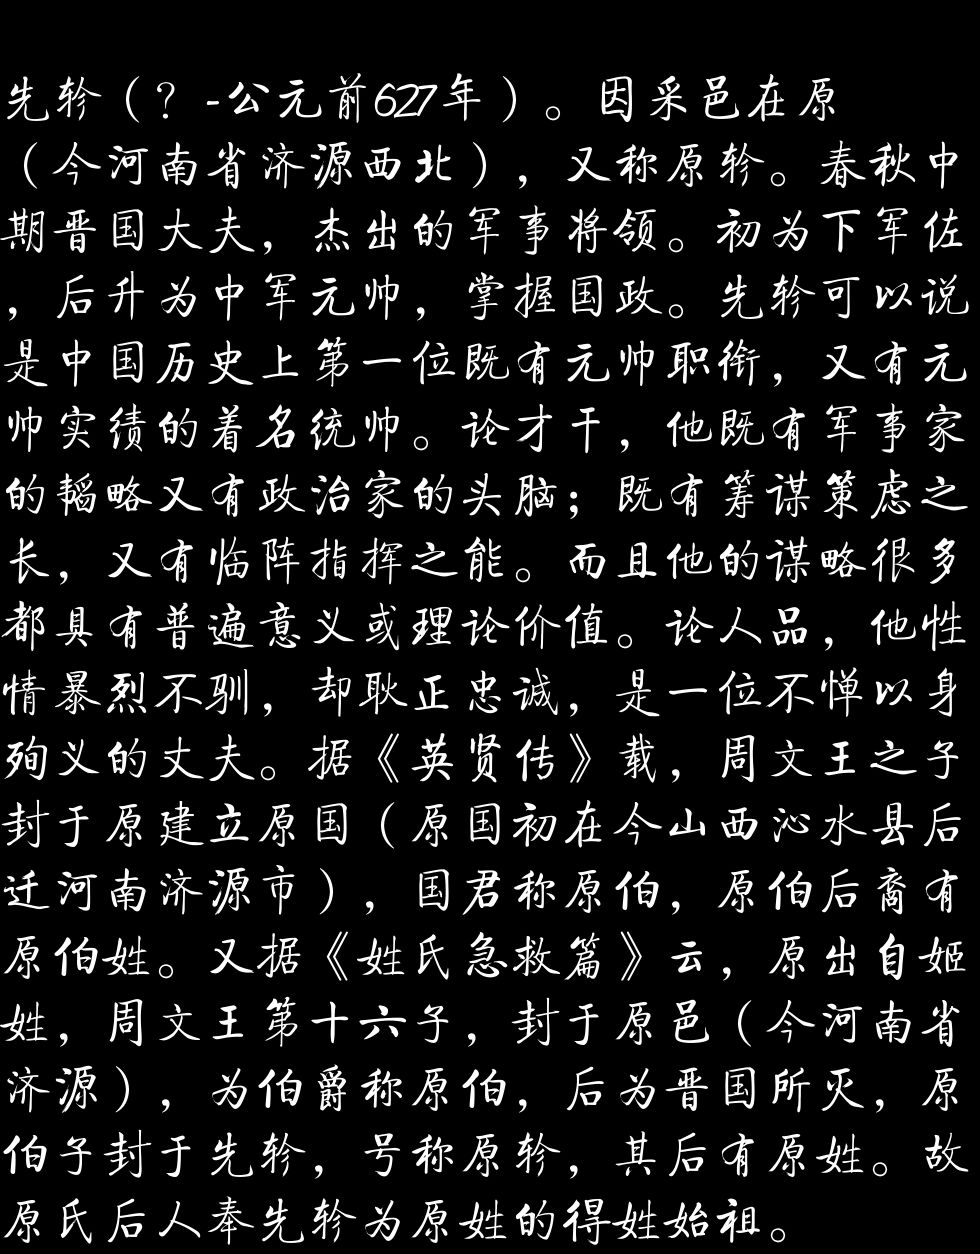 先轸（？-公元前627年）。因采邑在原
（今河南省济源西北），又称原轸。春秋中
期晋国大夫，杰出的军事将领。初为下军佐
，后升为中军元帅，掌握国政。先轸可以说
是中国历史上第一位既有元帅职衔，又有元
帅实绩的着名统帅。论才干，他既有军事家
的韬略又有政治家的头脑；既有筹谋策虑之
长，又有临阵指挥之能。而且他的谋略很多
都具有普遍意义或理论价值。论人品，他性
情暴烈不驯，却耿正忠诚，是一位不惮以身
殉义的丈夫。据《英贤传》载，周文王之子
封于原建立原国（原国初在今山西沁水县后
迁河南济源市），国君称原伯，原伯后裔有
原伯姓。又据《姓氏急救篇》云，原出自姬
姓，周文王第十六子，封于原邑（今河南省
济源），为伯爵称原伯，后为晋国所灭，原
伯子封于先轸，号称原轸，其后有原姓。故
原氏后人奉先轸为原姓的得姓始祖。